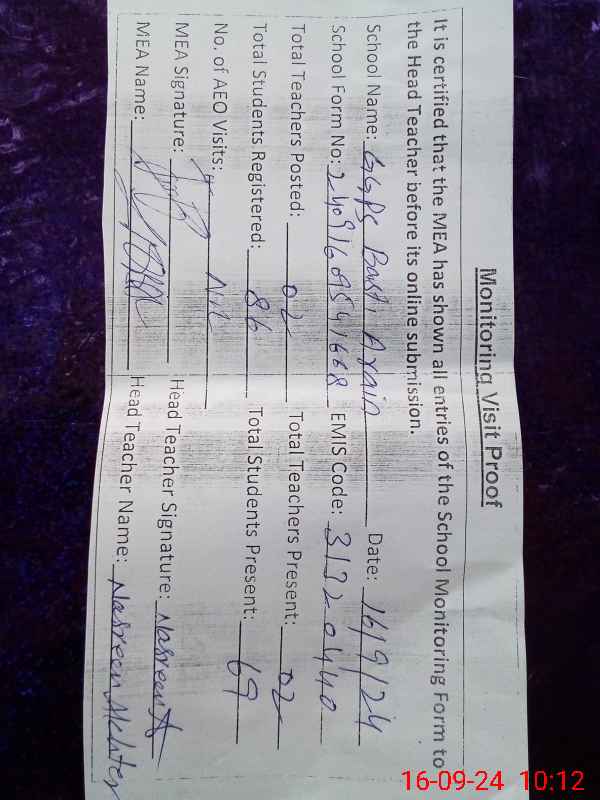 Monitoring Visit Proof
It is certified that the MEA has shown all entries of the School Monitoring Form to
the Head Teacher before its online submission.
School Name: GGPS Basti Arain Date: 16/9/24
School Form No: 24091609541668 EMIS Code: 31320440
Total Teachers Posted: 02 Total Teachers Present: 02
Total Students Registered: 86 Total Students Present: 69
No. of AEO Visits: Nil
MEA Signature: Head Teacher Signature: Nasreen A
MEA Name: Head Teacher Name: Nasreen Akhter
16-09-24 10:12